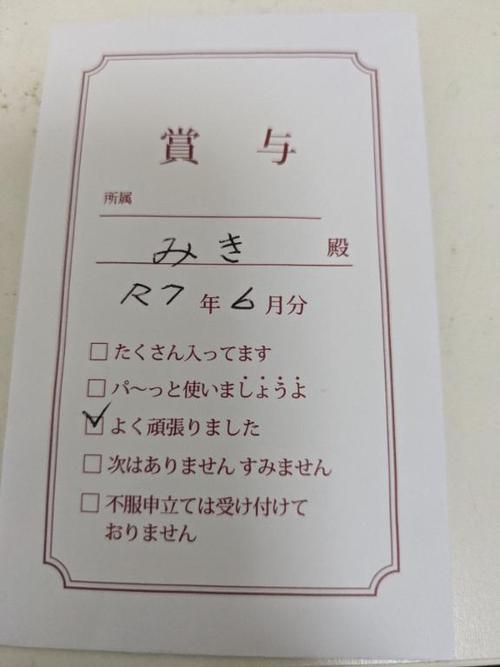 賞 与
所属
みき 殿
R7年6月分
□たくさん入ってます
□パ〜っと使いましょうよ
☑よく頑張りました
□次はありません すみません
□不服申立ては受け付けて
おりません